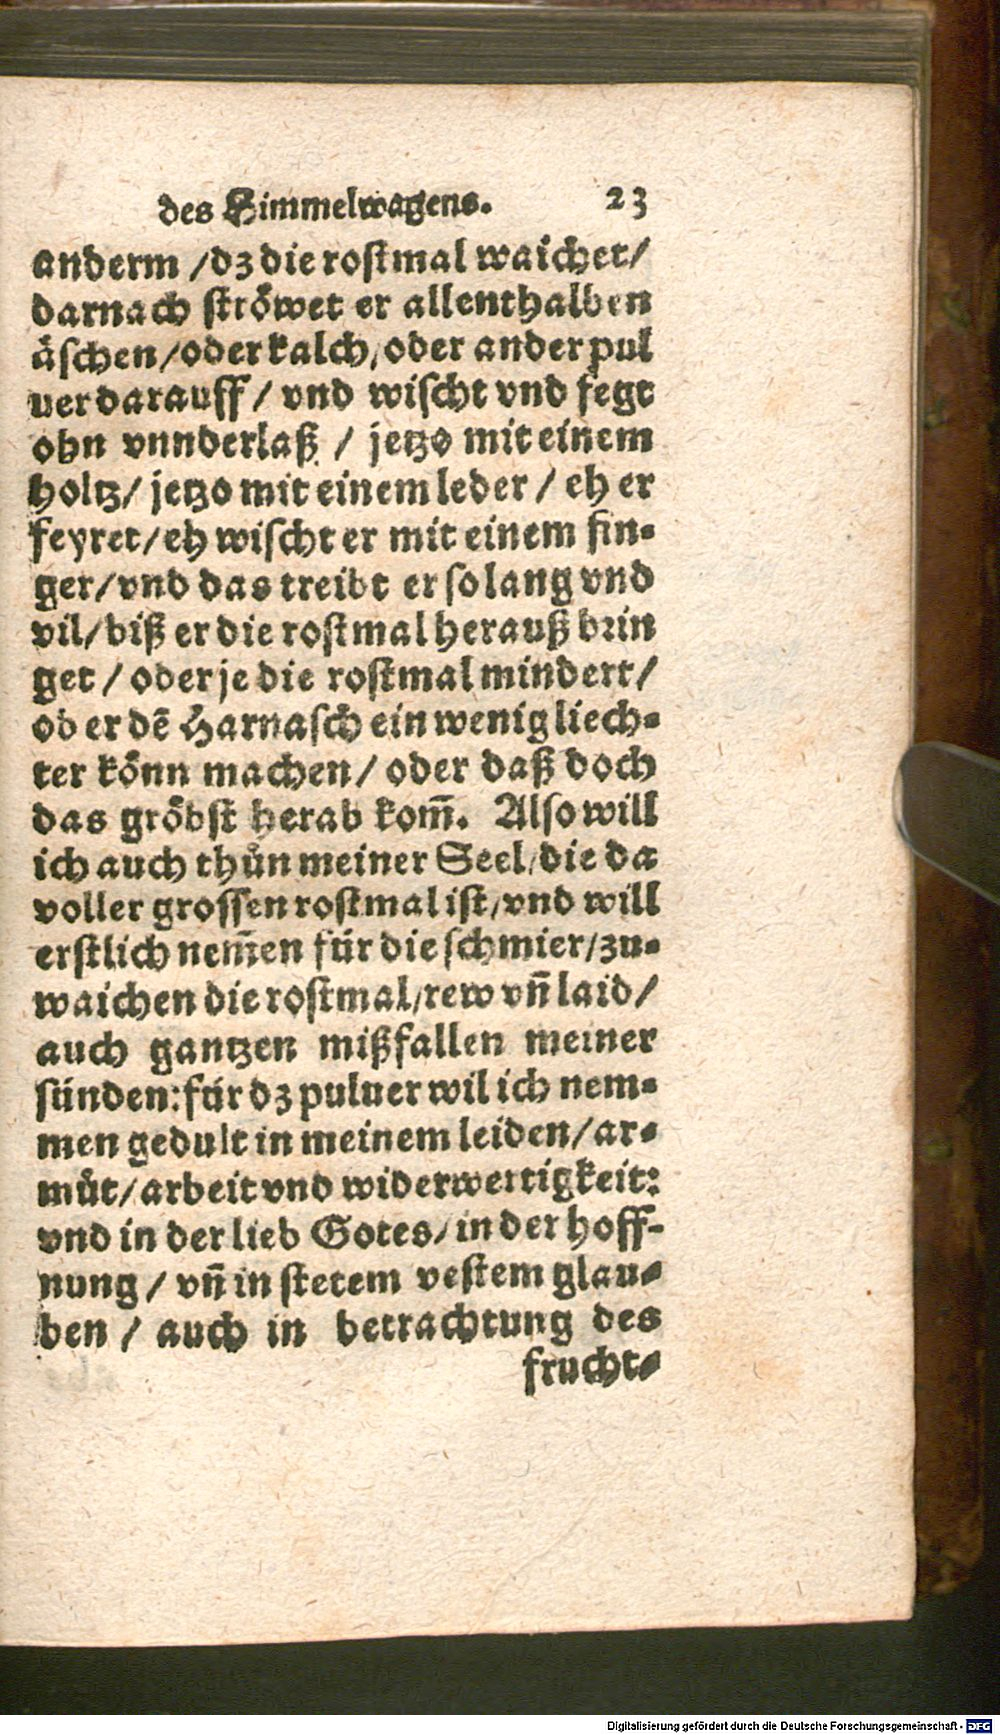 des Himmelwagens. 23
anderm /dz die rostmal waichet/
darnach ströwet er allenthalben
äschen/oder kalch/oder ander pul
uer darauff / vnd wischt vnd fegt
ohn vnnderlaß / jetzo mit einem
holtz/ jetzo mit einem leder / eh er
feyret/eh wischt er mit einem fin-
ger/vnd das treibt er so lang vnd
vil/biß er die rostmal herauß brin
get / oder je die rostmal mindert/
ob er dē Harnasch ein wenig liech-
ter könn machen/ oder daß doch
das gröbst herab kom̄. Also will
ich auch thůn meiner Seel/die da
voller grossen rostmal ist/vnd will
erstlich nem̄en für die schmier/zu-
waichen die rostmal/rew vn̄ laid/
auch gantzen mißfallen meiner
sünden:für dz puluer wil ich nem-
men gedult in meinem leiden/ar-
můt/arbeit vnd widerwertigkeit:
vnd in der lieb Gotes/in der hoff-
nung / vn̄ in stetem vestem glau-
ben / auch in betrachtung des
frucht-
Digitalisierung gefördert durch die Deutsche Forschungsgemeinschaft - DFG